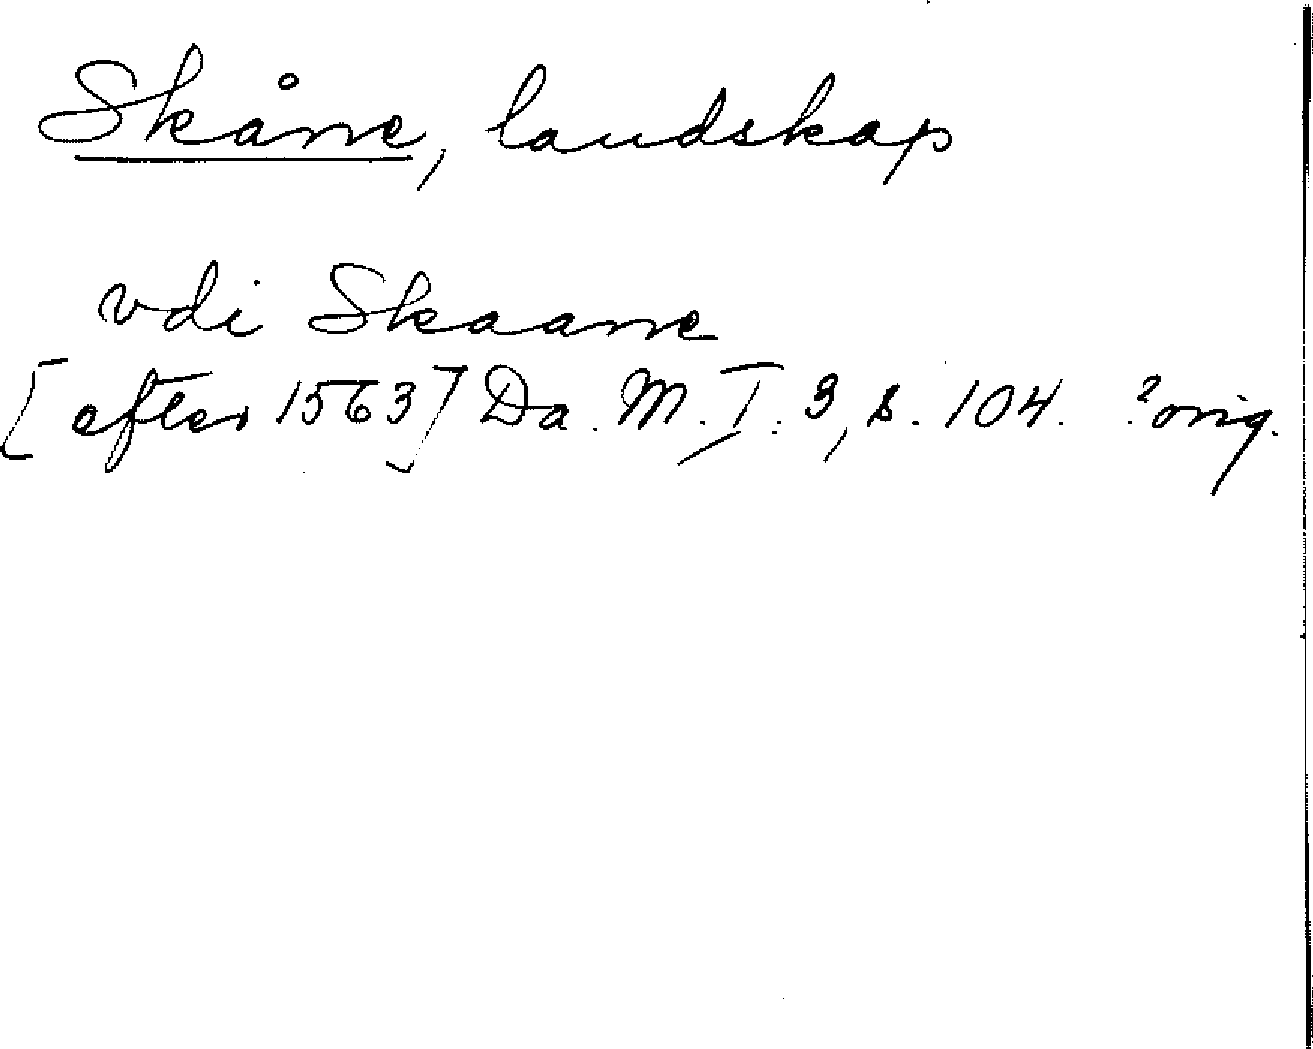 Skåne, landskap
vdi Skaane
[efter 1563] Da. M. I. 3, s. 104. ?orig.